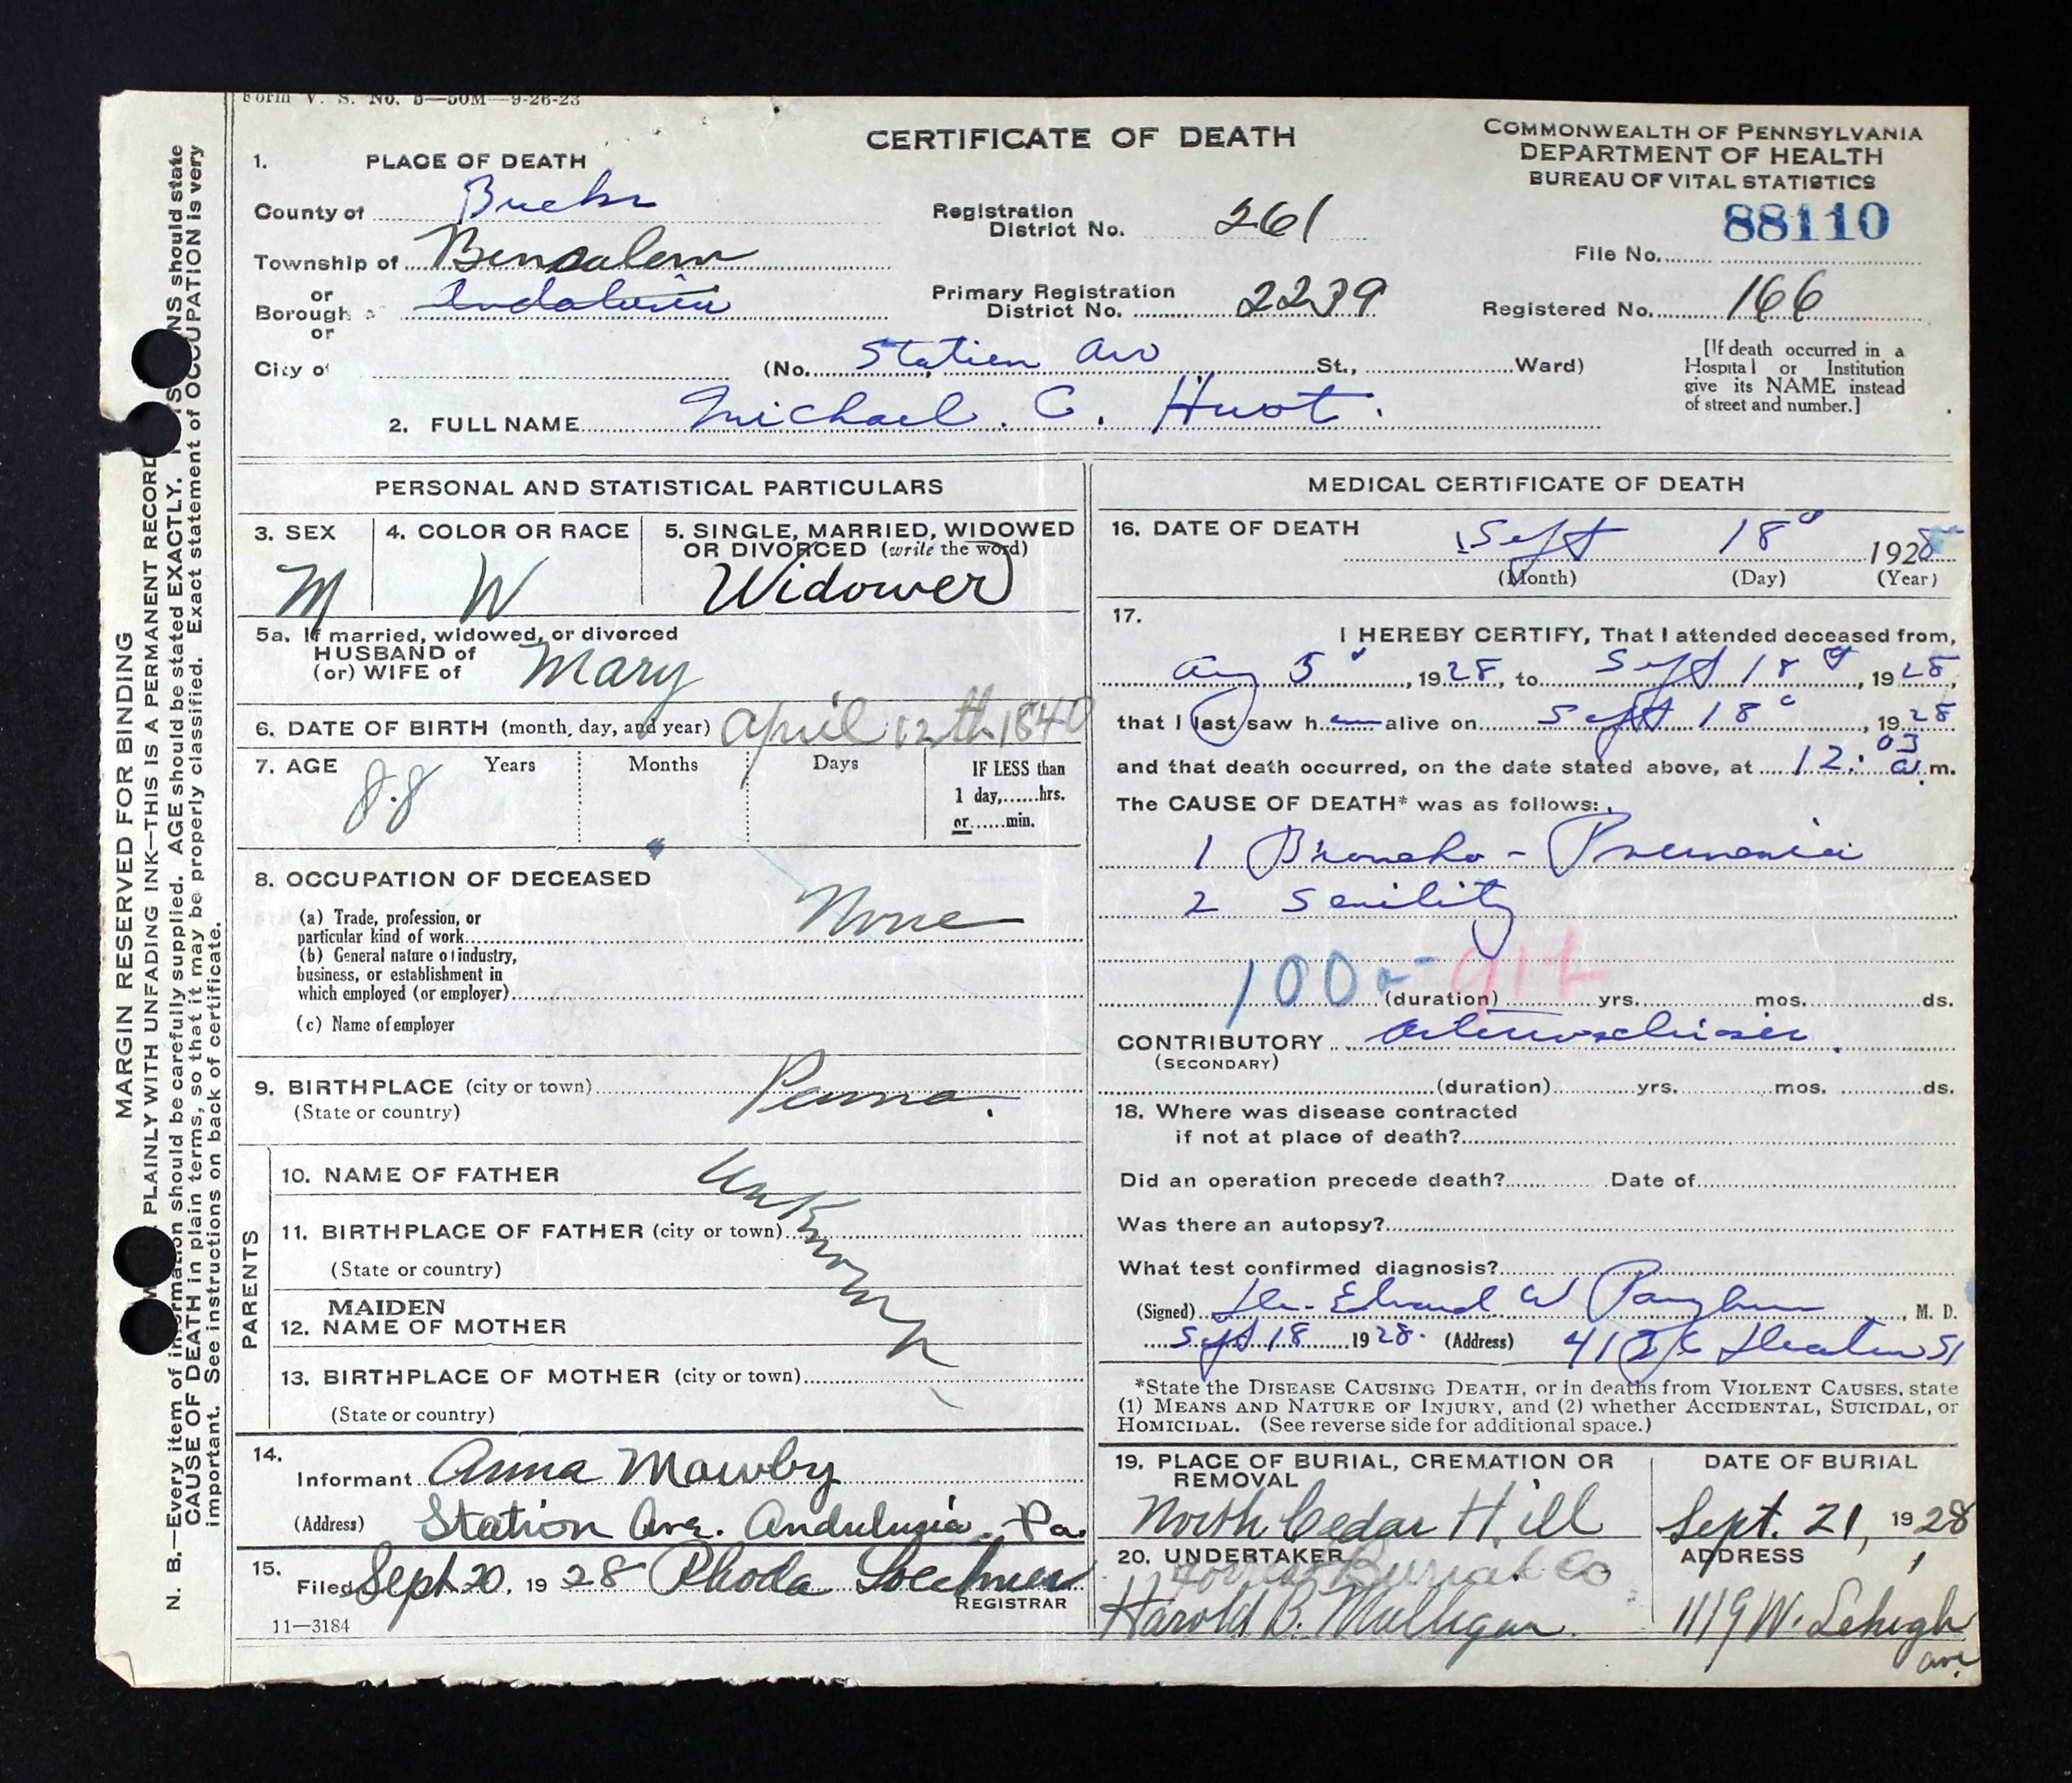 Form V. S. No. 5—50M—9-26-23
CERTIFICATE OF DEATH
COMMONWEALTH OF PENNSYLVANIA
DEPARTMENT OF HEALTH
BUREAU OF VITAL STATISTICS
1. PLACE OF DEATH
County of Bucks
Township of Bensalem
or
Borough of Andalusia
or
City of
Registration District No. 261
Primary Registration District No. 2239
(No. Station Ave St., Ward)
88110
File No.
Registered No. 166
[If death occurred in a
Hospital or Institution
give its NAME instead
of street and number.]
2. FULL NAME Michael C. Huot.
PERSONAL AND STATISTICAL PARTICULARS
3. SEX
M
4. COLOR OR RACE
W
5. SINGLE, MARRIED, WIDOWED
OR DIVORCED (write the word)
Widower
5a. If married, widowed, or divorced
HUSBAND of
(or) WIFE of Mary
6. DATE OF BIRTH (month, day, and year) April 12th 1840
7. AGE Years Months Days IF LESS than
88
1 day,......hrs.
or......min.
8. OCCUPATION OF DECEASED
(a) Trade, profession, or
particular kind of work None
(b) General nature of industry,
business, or establishment in
which employed (or employer)
(c) Name of employer
9. BIRTHPLACE (city or town) Penna.
(State or country)
PARENTS
10. NAME OF FATHER Unknown
11. BIRTHPLACE OF FATHER (city or town)
(State or country)
12. MAIDEN NAME OF MOTHER
13. BIRTHPLACE OF MOTHER (city or town)
(State or country)
14.
Informant Anna Mawby
(Address) Station Ave. Andulusia. Pa.
15.
Filed Sept 20, 1928 Rhoda
REGISTRAR
11—3184
MEDICAL CERTIFICATE OF DEATH
16. DATE OF DEATH
Sept 18 1928
(Month) (Day) (Year)
17.
I HEREBY CERTIFY, That I attended deceased from,
Aug 5, 1928, to Sept 18, 1928,
that I last saw him alive on Sept 18, 1928
and that death occurred, on the date stated above, at 12:03 a.m.
The CAUSE OF DEATH* was as follows:
1 Broncho - Pneumonia
2 Senility
100a- 912
(duration) yrs. mos. ds.
CONTRIBUTORY Arteriosclerosis.
(SECONDARY)
(duration) yrs. mos. ds.
18. Where was disease contracted
if not at place of death?
Did an operation precede death? Date of
Was there an autopsy?
What test confirmed diagnosis?
(Signed) Edward W Pangburn, M. D.
Sept 18 1928. (Address) St
*State the DISEASE CAUSING DEATH, or in deaths from VIOLENT CAUSES, state
(1) MEANS AND NATURE OF INJURY, and (2) whether ACCIDENTAL, SUICIDAL, or
HOMICIDAL. (See reverse side for additional space.)
19. PLACE OF BURIAL, CREMATION OR
REMOVAL
North Cedar Hill
DATE OF BURIAL
Sept. 21, 1928
20. UNDERTAKER
Burial Co
Harold B. Mulligan
ADDRESS
1119 W. Lehigh
ave.
MARGIN RESERVED FOR BINDING
PLAINLY WITH UNFADING INK—THIS IS A PERMANENT RECORD
N. B.—Every item of information should be carefully supplied. AGE should be stated EXACTLY. should state
CAUSE OF DEATH in plain terms, so that it may be properly classified. Exact statement of OCCUPATION is very
important. See instructions on back of certificate.